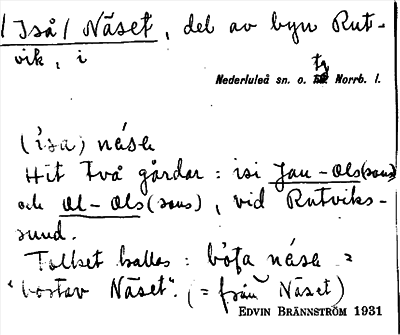 / Iså / Näset, del av byn Rut-
vik, i
Nederluleå sn. o. tg Norrb. l.
(isa) nása
Hit två gårdar: isi Jan-Ols(sons)
och Ol-Ols(sons), vid Rutviks-
sund.
Folket kallas: bófa nása =
"bortav Näset". (= från Näset)
EDVIN BRÄNNSTRÖM 1931